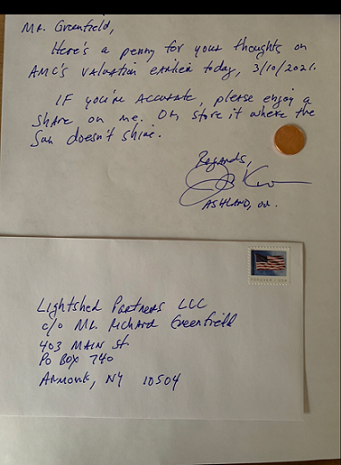 Mr. Greenfield,
Here's a penny for your thoughts on
AMC's valuation earlier today, 3/10/2021.
If you're accurate, please enjoy a
share on me. Or store it where the
Sun doesn't shine.
Regards,
Ashland, Or.
Lightshed Partners LLC
c/o Mr. Richard Greenfield
403 Main St.
PO Box 740
Armonk, NY 10504